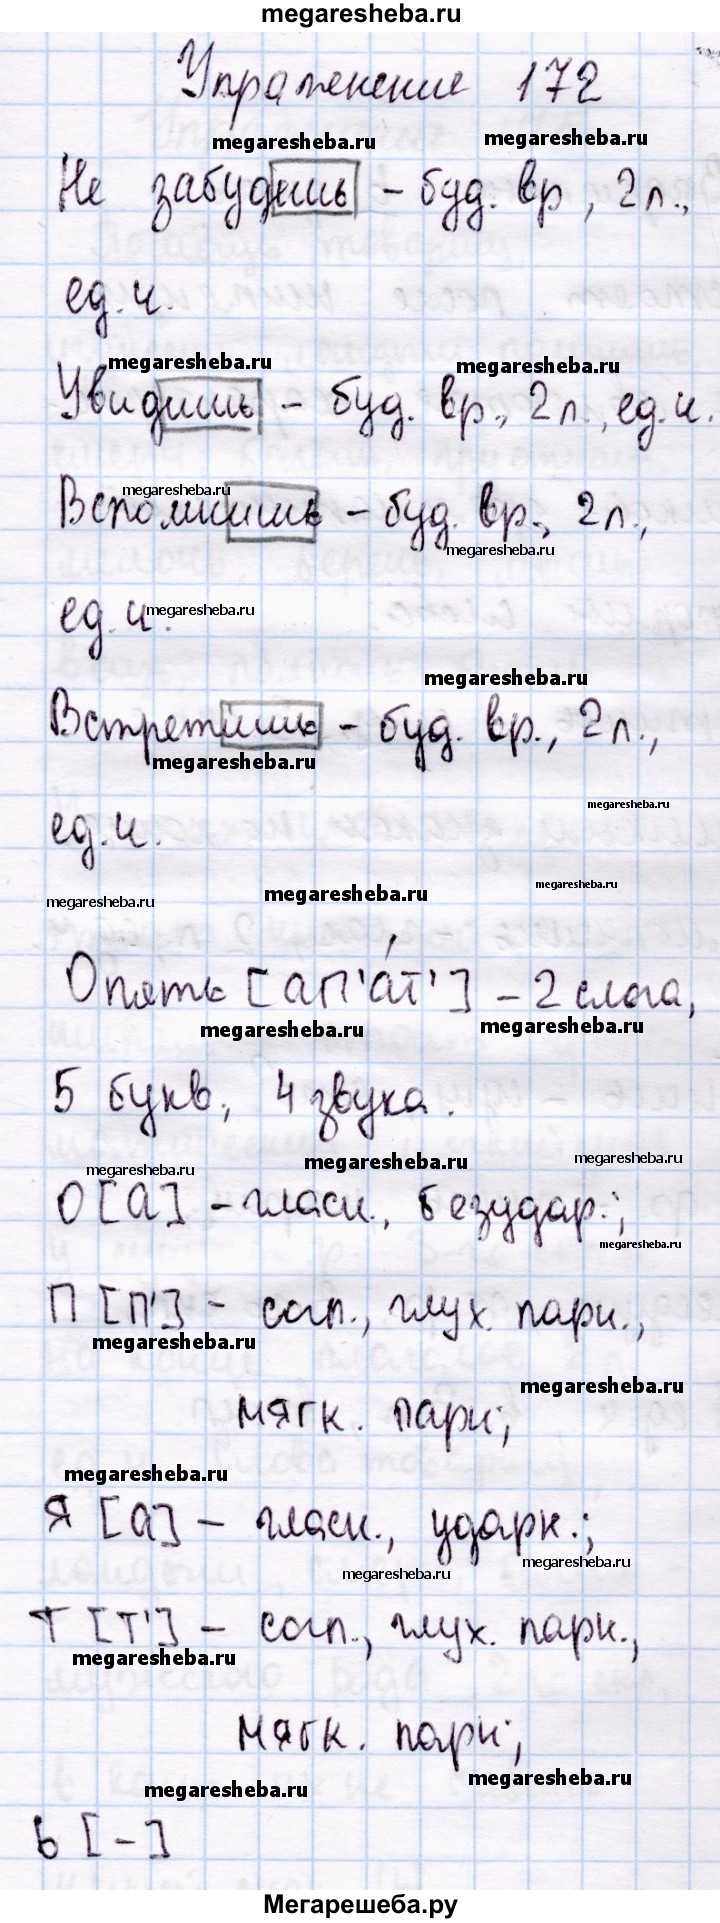 megaresheba.ru
Упражнение 172
megaresheba.ru megaresheba.ru
Не забудешь - буд. вр, 2 л.,
ед.ч.
megaresheba.ru megaresheba.ru
Увидишь - буд. вр., 2 л., ед.ч.
megaresheba.ru
Вспомнишь - буд. вр., 2 л.,
megaresheba.ru
ед.ч. megaresheba.ru
megaresheba.ru
Встретишь - буд. вр., 2 л.,
megaresheba.ru
megaresheba.ru
ед.ч.
megaresheba.ru megaresheba.ru megaresheba.ru
Опять [ап'а́т'] - 2 слога,
megaresheba.ru megaresheba.ru
5 букв, 4 звука.
megaresheba.ru megaresheba.ru megaresheba.ru
О [а] - гласн., безудар.;
megaresheba.ru
П [п'] - согл., глух. парн.,
megaresheba.ru
megaresheba.ru
мягк. парн;
megaresheba.ru
Я [а] - гласн., ударн.;
megaresheba.ru megaresheba.ru
Т [т'] - согл., глух. парн.,
megaresheba.ru
мягк. парн;
megaresheba.ru megaresheba.ru
ь [-]
Мегарешеба.ру